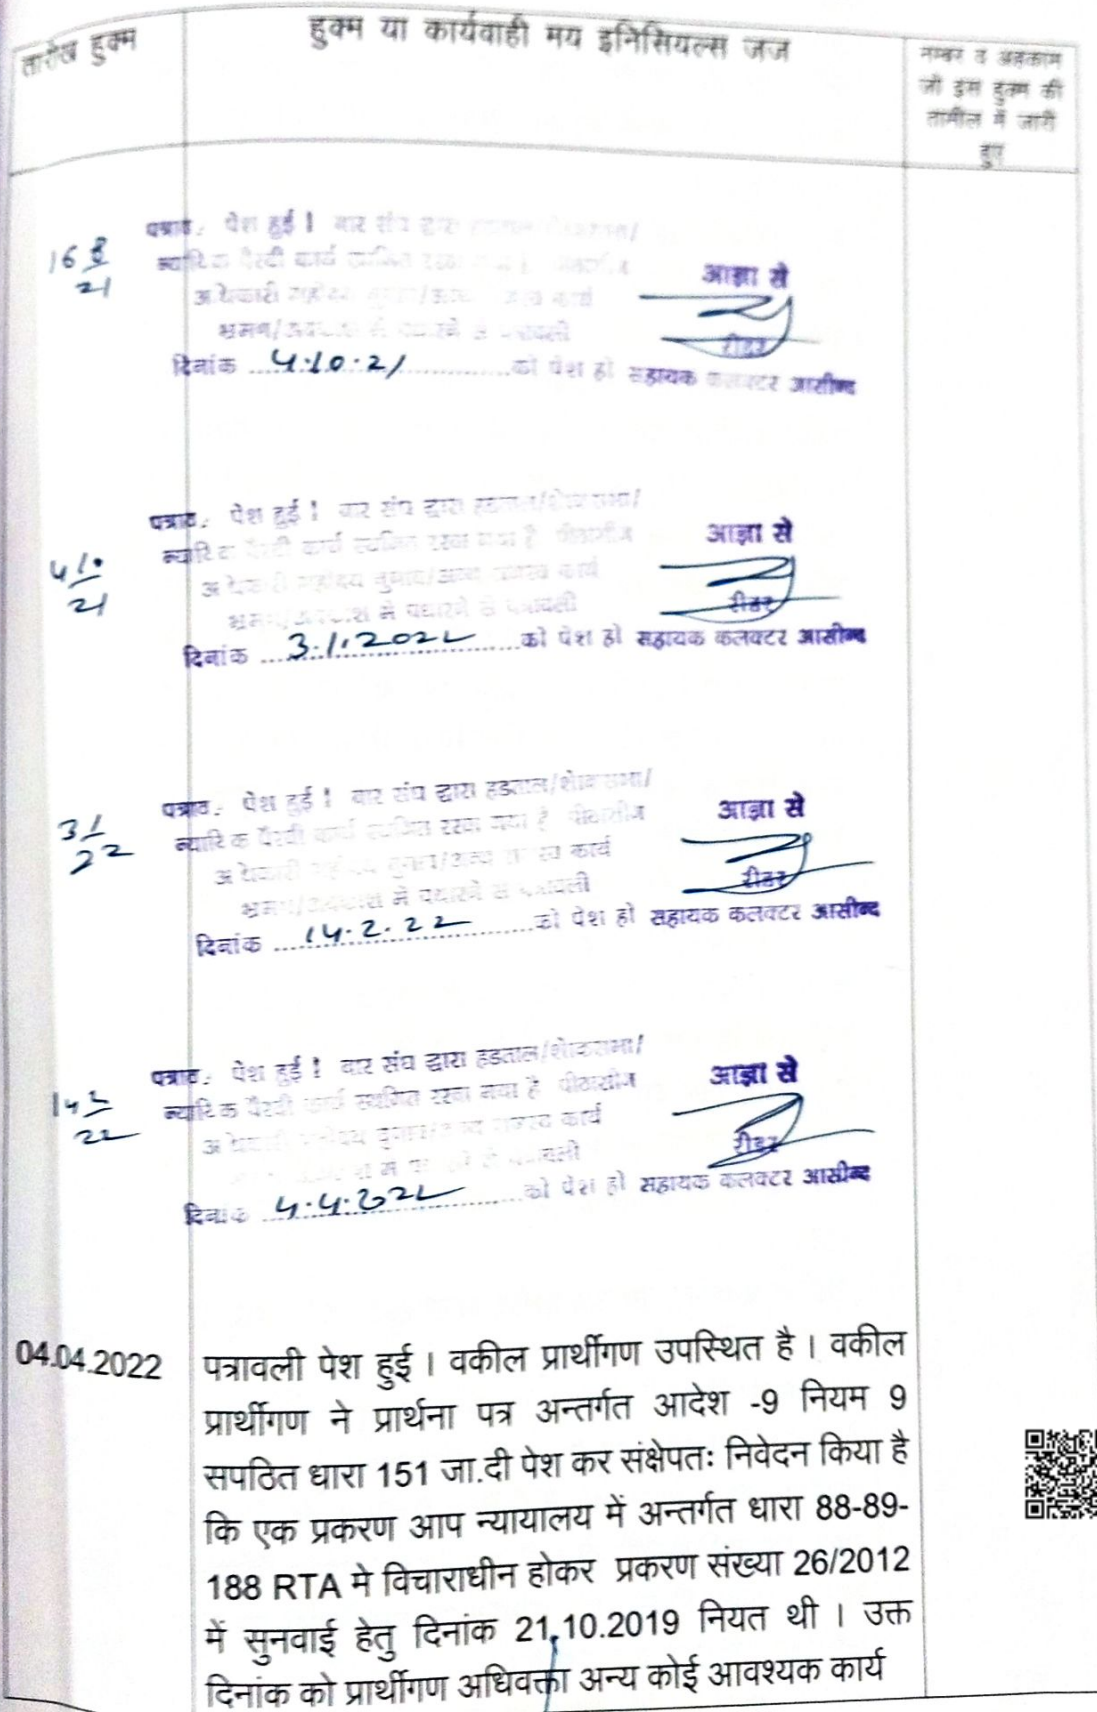 तारीख हुक्म
हुक्म या कार्यवाही मय इनिसियल्स जज
नम्बर व अहकाम
जो इस हुक्म की
तामील में जारी
हुए
16 8
21
पत्राव. पेश हुई । बार संघ द्वारा
आज्ञा से
रीडर
दिनांक 4.10.21 को पेश हो सहायक कलक्टर आसीन्द
4 10
21
पत्राव. पेश हुई । बार संघ द्वारा हडताल/शोकसभा/
न्यायिक पैरवी कार्य स्थगित रखा गया है पीठासीन
आज्ञा से
अधिकारी महोदय चुनाव/अन्य राजस्व कार्य
भ्रमण/अवकाश में पधारने से पत्रावली
रीडर
दिनांक 3.1.2022 को पेश हो सहायक कलक्टर आसीन्द
3 1
22
पत्राव. पेश हुई । बार संघ द्वारा हडताल/शोकसभा/
न्यायिक पैरवी कार्य स्थगित रखा गया है पीठासीन
आज्ञा से
अधिकारी महोदय चुनाव/अन्य राजस्व कार्य
भ्रमण/अवकाश में पधारने से पत्रावली
रीडर
दिनांक 14.2.22 को पेश हो सहायक कलक्टर आसीन्द
14 2
22
पत्राव. पेश हुई । बार संघ द्वारा हडताल/शोकसभा/
न्यायिक पैरवी कार्य स्थगित रखा गया है पीठासीन
आज्ञा से
अधिकारी महोदय चुनाव/अन्य राजस्व कार्य
रीडर
दिनांक 4.4.2022 को पेश हो सहायक कलक्टर आसीन्द
04.04.2022 पत्रावली पेश हुई । वकील प्रार्थीगण उपस्थित है । वकील
प्रार्थीगण ने प्रार्थना पत्र अन्तर्गत आदेश -9 नियम 9
सपठित धारा 151 जा.दी पेश कर संक्षेपतः निवेदन किया है
कि एक प्रकरण आप न्यायालय में अन्तर्गत धारा 88-89-
188 RTA मे विचाराधीन होकर प्रकरण संख्या 26/2012
में सुनवाई हेतु दिनांक 21.10.2019 नियत थी । उक्त
दिनांक को प्रार्थीगण अधिवक्ता अन्य कोई आवश्यक कार्य